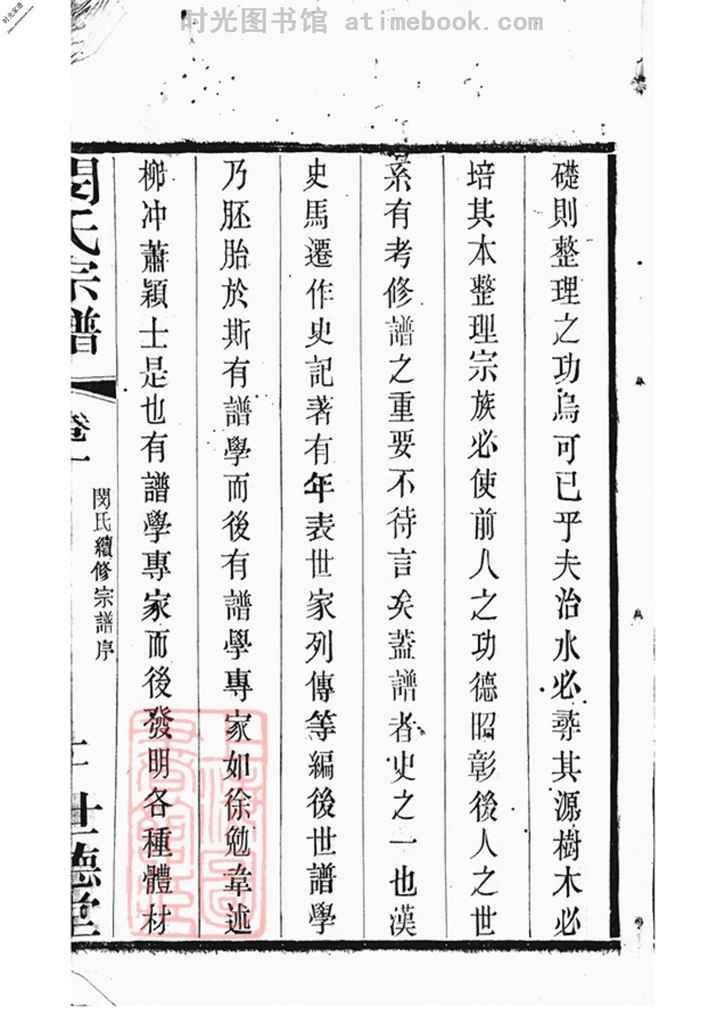 时光图书馆 atimebook.com
礎則整理之功烏可已乎夫治水必尋其源樹木必
培其本整理宗族必使前人之功德昭彰後人之世
系有考修譜之重要不待言矣蓋譜者史之一也漢
史馬遷作史記著有年表世家列傳等編後世譜學
乃胚胎於斯有譜學而後有譜學專家如徐勉韋述
柳冲蕭穎士是也有譜學專家而後發明各種體材
閔氏宗譜
卷一
閔氏續修宗譜序
世德堂